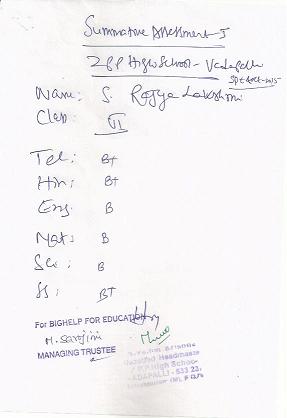 Summative Assessment-I
ZPP High School - Vadapalli
Name: S. Rajya Lakshmi
Clas VI
Tel: B+
Hin: B+
Eng: B
Mat: B
Sci: B
SS: B+
For BIGHELP FOR EDUCATION
M. Sarojini
MANAGING TRUSTEE
Headmaster
Z.P.P. High School
VADAPALLI - 533 23